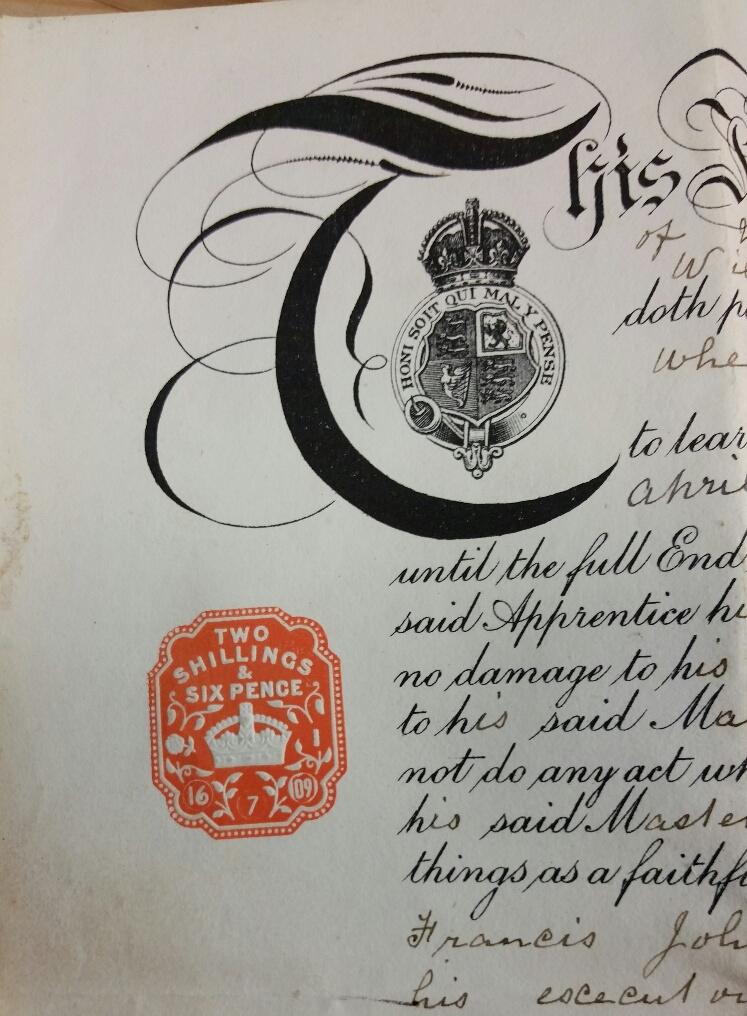 This
HONI SOIT QUI MAL Y PENSE
of
doth
whe
to lear
April
until the full End
said Apprentice his
no damage to his
to his said Ma
not do any act wh
his said Master
things as a faithfu
Francis Joh
his escecut
TWO
SHILLINGS
&
SIX PENCE
16 7 09